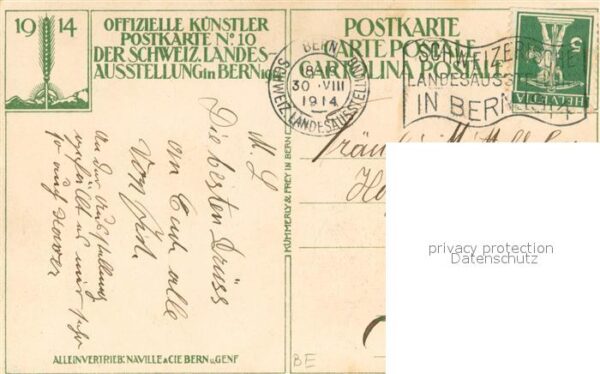 19 14
OFFIZIELLE KÜNSTLER
POSTKARTE No. 10
DER SCHWEIZ. LANDES-
AUSSTELLUNG in BERN 1914
POSTKARTE
CARTE POSTALE
CARTOLINA POSTALE
BERN
30 · VIII
1914
SCHWEIZ. LANDESAUSSTELLUNG
SCHWEIZERISCHE
LANDESAUSSTELLUNG
IN BERN 1914
HELVETIA
5
M. L
Die besten Grüss
an Euch alle
von
An der Ausstellung
gefällt es mir sehr
so auch
Fräulein
KÜMMERLY & FREY IN BERN
privacy protection
Datenschutz
ALLEINVERTRIEB: NAVILLE & CIE BERN u. GENF
BE